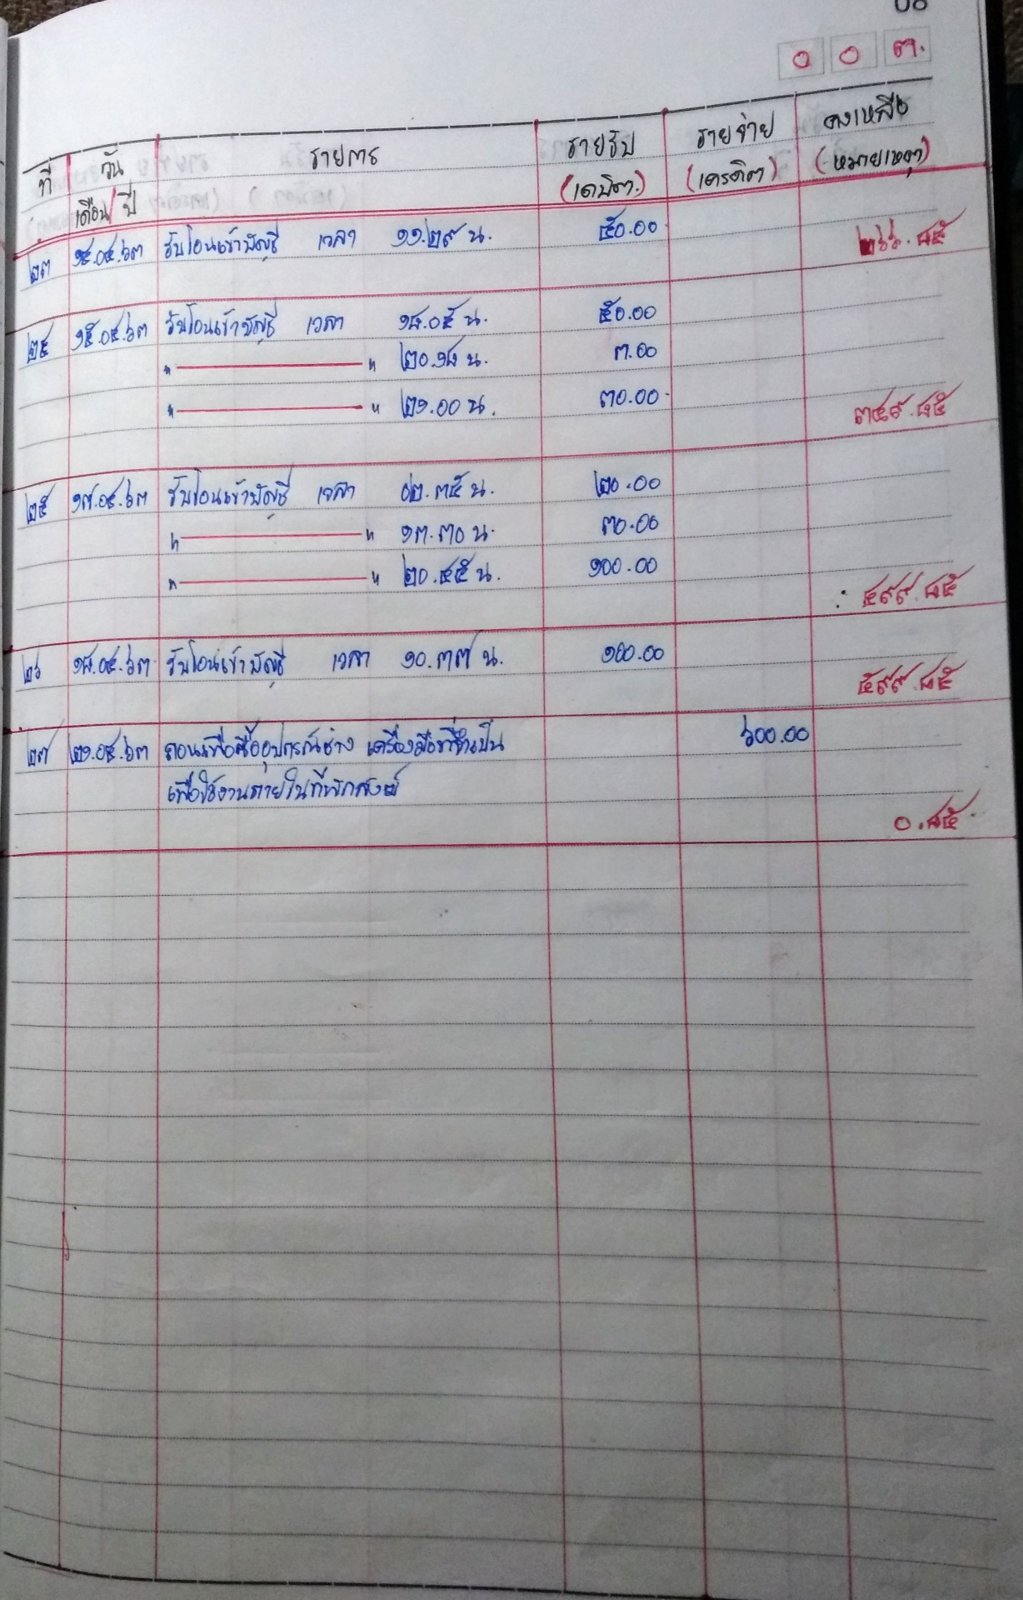 ๐ ๐ ๓.
ที่ วัน เดือน/ปี รายการ รายรับ (เดบิต.) รายจ่าย (เครดิต) คงเหลือ (หมายเหตุ)
๒๓ ๑๔.๐๔.๖๓ รับโอนเข้าบัญชี เวลา ๑๑.๒๙ น. ๕๐.๐๐
๒๖๖.๘๕
๒๔ ๑๕.๐๔.๖๓ รับโอนเข้าบัญชี เวลา ๑๘.๐๕ น. ๕๐.๐๐
" ——— " ๒๐.๑๘ น. ๓.๐๐
" ——— " ๒๑.๐๐ น. ๓๐.๐๐
๓๔๙.๘๕
๒๕ ๑๗.๐๔.๖๓ รับโอนเข้าบัญชี เวลา ๐๒.๓๕ น. ๒๐.๐๐
" ——— " ๑๓.๓๐ น. ๓๐.๐๐
" ——— " ๒๐.๔๕ น. ๑๐๐.๐๐
๔๙๙.๘๕
๒๖ ๑๘.๐๔.๖๓ รับโอนเข้าบัญชี เวลา ๑๐.๓๗ น. ๑๐๐.๐๐
๕๙๙.๘๕
๒๗ ๒๑.๐๔.๖๓ ถอนเพื่อซื้ออุปกรณ์ช่าง เครื่องมือที่จำเป็น ๖๐๐.๐๐
เพื่อใช้งานภายในที่พักสงฆ์
๐.๘๕